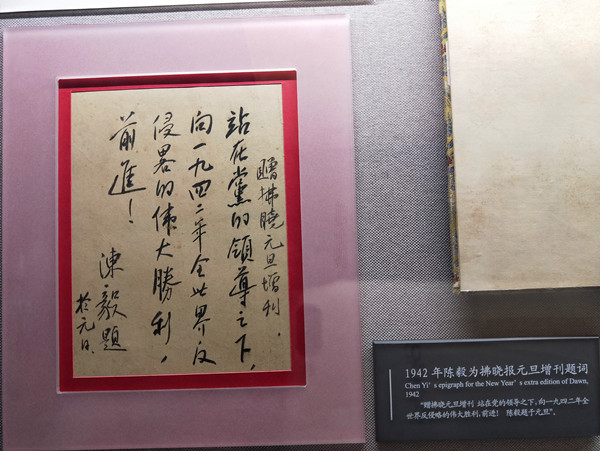 贈拂曉元旦增刊．
站在黨的領導之下，
向一九四二年全世界反
侵畧的偉大勝利，
前進！
陳毅題
於元旦．
1942 年陈毅为拂晓报元旦增刊题词
Chen Yi’s epigraph for the New Year’s extra edition of Dawn,
1942
“赠拂晓元旦增刊 站在党的领导之下，向一九四二年全
世界反侵略的伟大胜利，前进！ 陈毅题于元旦”。